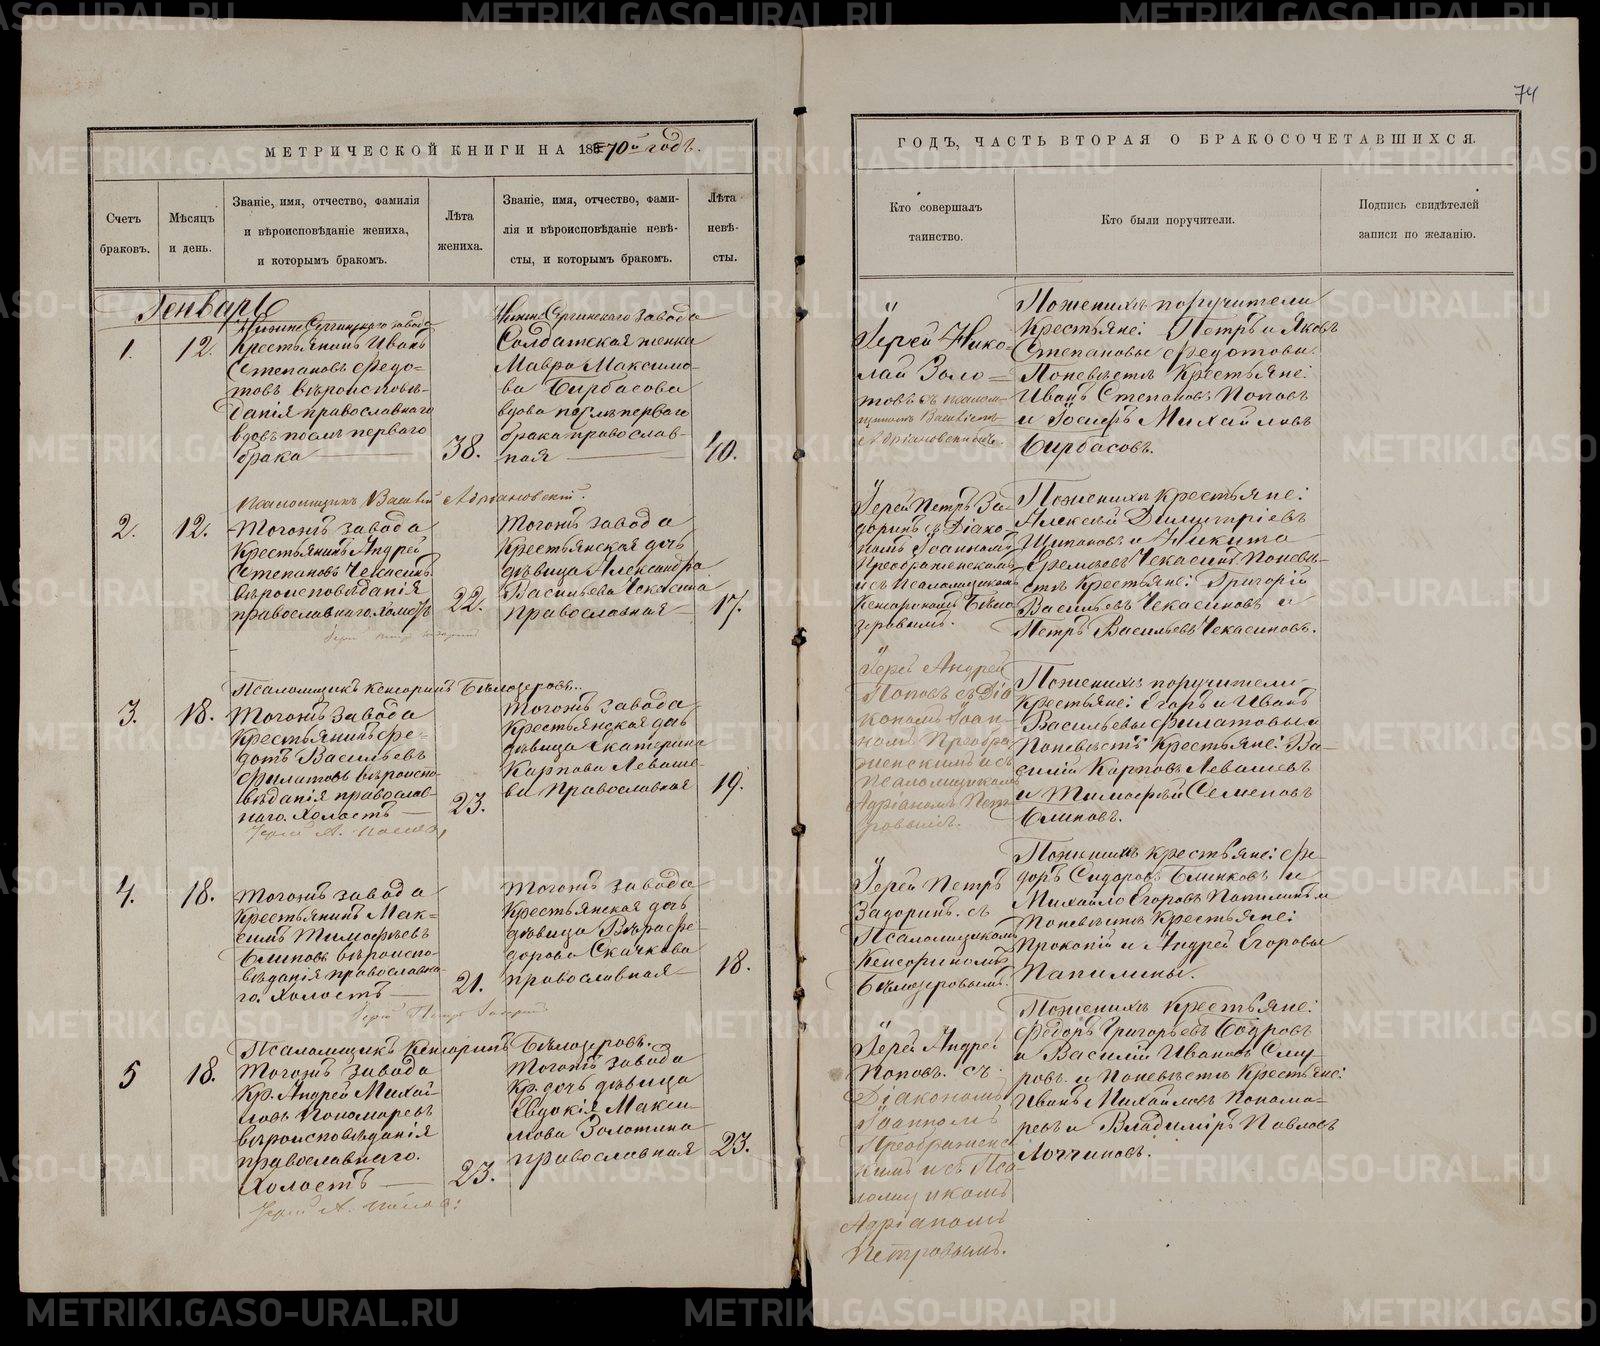 74
МЕТРИЧЕСКОЙ КНИГИ НА 1870й годъ.
Счетъ браковъ.
Мѣсяцъ и день.
Званіе, имя, отчество, фамилія
и вѣроисповѣданіе жениха,
и которымъ бракомъ.
Лѣта жениха.
Званіе, имя, отчество, фами-
лія и вѣроисповѣданіе невѣ-
сты, и которымъ бракомъ.
Лѣта невѣ-
сты.
Генварь
1.
12.
Нижне Сергинскаго завода
Крестьянинъ Иванъ
Степановъ Федо-
товъ вѣроисповѣ-
данія православнаго
вдовъ послѣ перваго
брака
38.
Нижне Сергинскаго завода
Солдатская женка
Мавра Максимо-
ва Бирбасова
вдова послѣ перваго
брака православ-
ная
40.
Псаломщикъ
2.
12.
Тогожъ завода
Крестьянинъ Андрей
Степановъ Чекасинъ
вѣроисповѣданія
православнаго. холостъ
22.
Тогожъ завода
Крестьянская дочь
дѣвица Александра
Васильева Чекасина
православная
17.
Псаломщикъ Кенсоринъ Бѣлозеровъ.
3.
18.
Тогожъ завода
Крестьянинъ Фе-
дотъ Васильевъ
Филатовъ вѣроиспо-
вѣданія православ-
наго. Холостъ
23.
Тогожъ завода
Крестьянская дочь
дѣвица Екатерина
Карпова Леваше-
ва Православная
19.
Іерей А. Поповъ
4.
18.
Тогожъ завода
Крестьянинъ Мак-
симъ Тимофѣевъ
Блиновъ вѣроиспо-
вѣданія православна-
го. Холостъ
21.
Тогожъ завода
Крестьянская дочь
дѣвица Вѣра Фе-
дорова Скачкова
православная
18.
Іерей Петръ Задоринъ
Псаломщикъ Кенсоринъ Бѣлозеровъ.
5
18.
Тогожъ завода
Кр. Андрей Михай-
ловъ Пономаревъ
вѣроисповѣданія
православнаго.
Холостъ
23.
Тогожъ завода
Кр. дочь дѣвица
Евдокія Макси-
мова Золотина
православная
23.
Іерей А. Поповъ
ГОДЪ, ЧАСТЬ ВТОРАЯ О БРАКОСОЧЕТАВШИХСЯ.
Кто совершалъ
таинство.
Кто были поручители.
Подпись свидѣтелей
записи по желанію.
Іерей Нико-
лай Золо-
товъ съ псалом-
щикомъ
По женихѣ поручители
Крестьяне: Петръ и Яковъ
Степановы Федотовы.
По невѣстѣ Крестьяне:
Иванъ Степановъ Поповъ
и Іосифъ Михайловъ
Бирбасовъ.
Іерей Петръ За-
доринъ съ Діако-
номъ Іоанномъ
Преображенскимъ
и съ Псаломщикомъ
Кенсориномъ Бѣло-
зеровымъ.
По женихѣ Крестьяне:
Алексѣй Димитріевъ
Шипановъ и Никита
Еремѣевъ Чекасинъ. По невѣ-
стѣ Крестьяне: Григорій
Васильевъ Чекасиновъ и
Петръ Васильевъ Чекасиновъ.
Іерей Андрей
Поповъ съ Діа-
кономъ Іоан-
номъ Преобра-
женскимъ и съ
Псаломщикомъ
Адріаномъ Пет-
ровымъ.
По женихѣ поручители
Крестьяне: Егоръ и Иванъ
Васильевы Филатовы и
По невѣстѣ Крестьяне: Ва-
силій Карповъ Левашевъ
и Тимофѣй Семеновъ
Блиновъ.
Іерей Петръ
Задоринъ. съ
Псаломщикомъ
Кенсориномъ
Бѣлозеровымъ.
По женихѣ Крестьяне: Фе-
доръ Сидоровъ Блинковъ и
Михайло Егоровъ Папилинъ и
По невѣстѣ Крестьяне:
Прокопій и Андрей Егоровы
Папилины.
Іерей Андрей
Поповъ. съ
Діакономъ
Іоанномъ
Преображенс-
кимъ и съ Пса-
ломщикомъ
Адріаномъ
Петровымъ.
По женихѣ Крестьяне:
Федоръ Григорьевъ Бодровъ
и Василій Ивановъ
и По невѣстѣ Крестьяне:
Иванъ Михайловъ Понома-
ревъ и Владиміръ Павловъ